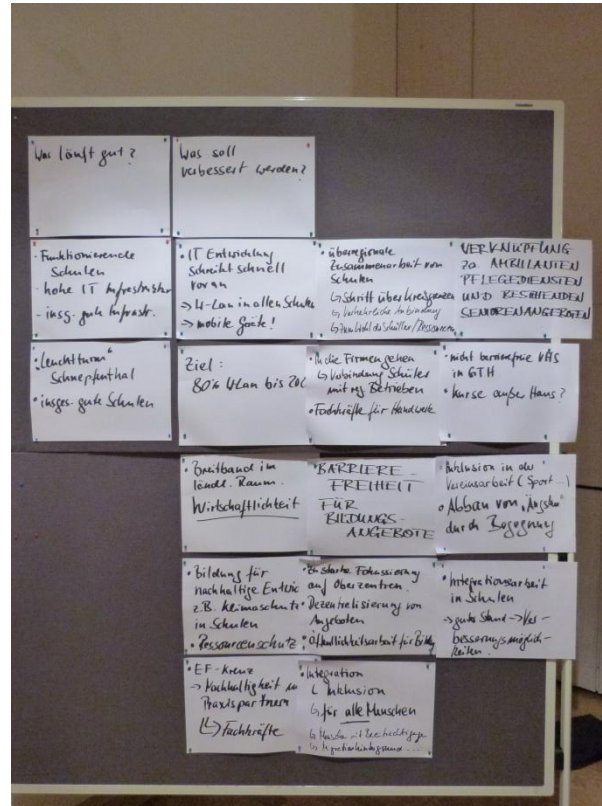 Was läuft gut?
Was soll
verbessert werden?
• Funktionierende
Schulen
- hohe IT Infrastruktur
- insg. gute Infrastr.
• IT Entwicklung
schreitet schnell
voran
→ W-Lan in allen Schulen
→ mobile Geräte!
• überregionale
Zusammenarbeit von
Schulen
↳ Schritt über Kreisgrenzen
↳ Verkehrliche Anbindung
↳ Schüler/Ressourcen
VERKNÜPFUNG
ZU AMBULANTEN
PFLEGEDIENSTEN
UND BESTEHENDEN
SENIORENANGEBOTEN
• "Leuchtturm"
Schnepfenthal
• insges. gute Schulen
Ziel:
80% WLan bis
• In die Firmen gehen
↳ Verbindung Schüler
mit reg. Betrieben
• Fachkräfte für Handwerk
• nicht barrierefreie VHS
in GTH
• Kurse außer Haus?
• Breitband im
ländl. Raum.
Wirtschaftlichkeit
• BARRIERE-
FREIHEIT
FÜR
BILDUNGS-
ANGEBOTE
• Inklusion in der
Vereinsarbeit (Sport...)
• Abbau von "Ängsten"
durch Begegnung
• Bildung für
nachhaltige Entwic
z.B. Klimaschutz
in Schulen
• Ressourcenschutz
• Zu starke Fokussierung
auf Oberzentren.
• Dezentralisierung von
Angeboten
• Öffentlichkeitsarbeit für
• Integrationsarbeit
in Schulen
→ guter Stand → Ver-
besserungsmöglich-
keiten.
• EF-Kreuz
→ Nachhaltigkeit in
Praxispartnern
↳ Fachkräfte
• Integration
↳ Inklusion
↳ für alle Menschen
↳ Menschen mit
↳